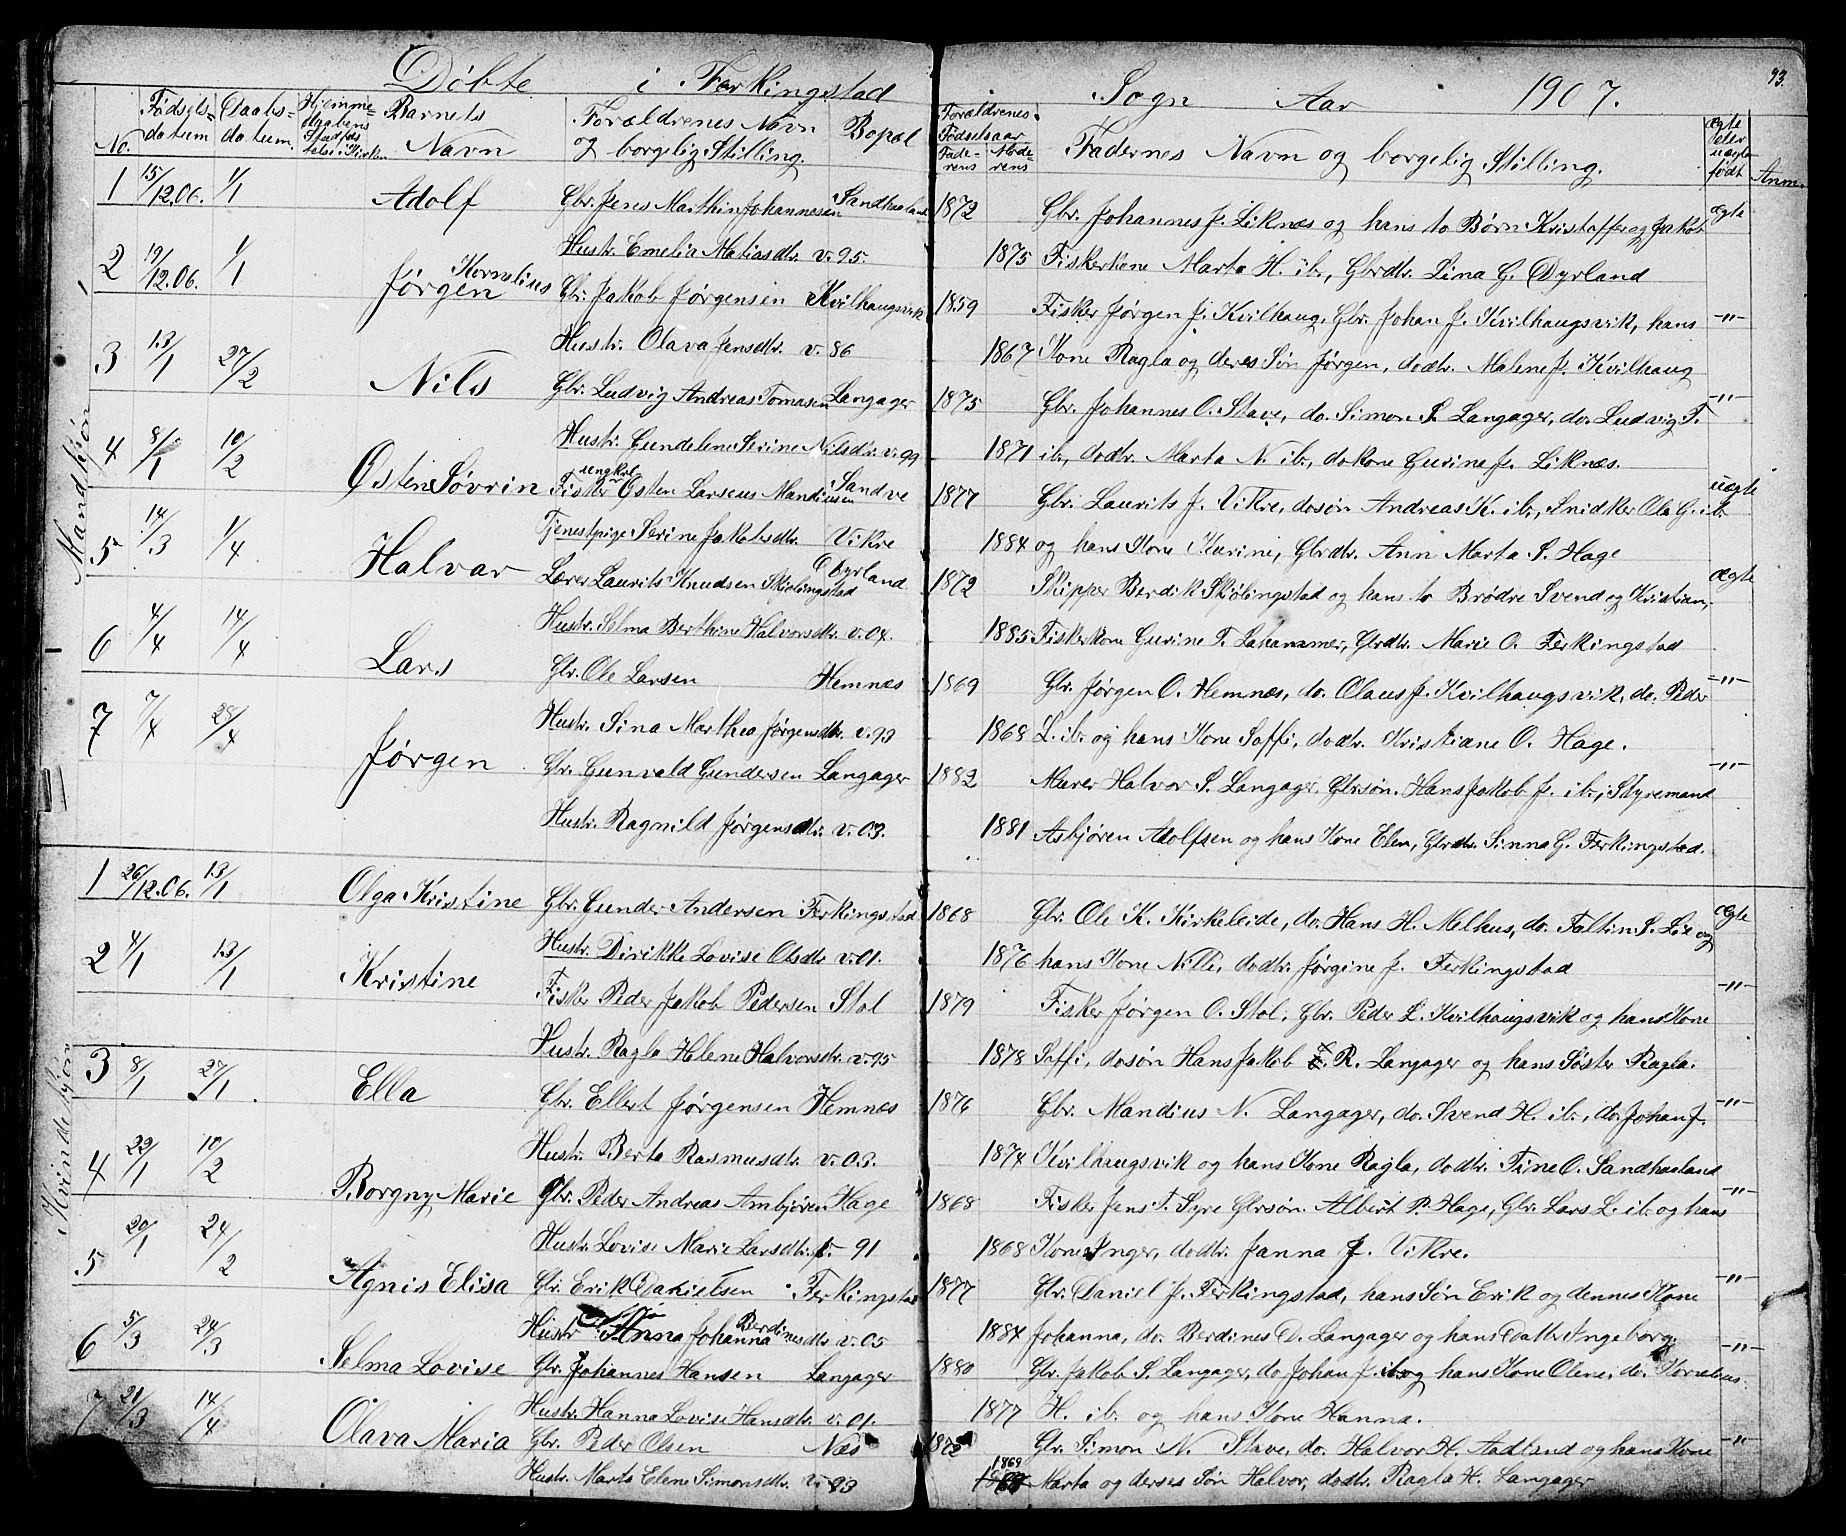 Döbte i Ferkingstad Sogn Aar 1907. 93.
No. Födsels-datum Daabs-datum. Hjemme-daabens Stadfæs telse i Kirken Barnets Navn Forældrenes Navn og borgelig Stilling. Bopæl Forældrenes Födselsaar Fade-rens Mod-rens Fadernes Navn og borgelig Stilling. Ægte eller uægte födt Anm.
Mandkjön
1 15/12.06. 1/1 Adolf Gbr. Jens Marthin Johannesen Sandhaaland 1872 Gbr. Johannes J. Liknes og hans to Börn Kristoffer og Jakob ægte
Hustr. Emelia Matiasdtr. v. 95. 1875 Fiskerkone Marta H. ib., Gbrdtr. Lina G. Dyrland
2 19/12.06. 1/1 Jørgen Kornelius Gbr. Jakob Jørgensen Kvilhaugsvik 1859 Fisker Jørgen J. Kvilhaug, Gbr. Johan J. Kvilhaugsvik, hans -"-
Hustr. Olava Jensdtr. v. 86 1867 Kone Ragla og deres Søn Jørgen, dodtr. Malene J. Kvilhaug
3 13/1 27/2 Nils Gbr. Ludvig Andreas Tomasen Langager 1875 Gbr. Johannes O. Stave, do. Simon S. Langager, do. Ludvig T. -"-
Hustr. Gundeline Serine Nilsdtr. v. 99 1871 ib., dodtr. Marta N. ib., dokone Gurine J. Liknes.
4 8/1 10/2 Østen Søvrin Fisker ungkrl. Østen Larseus Mandiusen Sandve 1877 Gbr. Laurits J. Vikre, dosøn Andreas K. ib., Snidker Ola G. ib. uægte
Tjenestpige Serine Jakobsdtr. Vikre 1884 og hans Kone Karine, Gbrdtr. Ann Marta S. Hage
5 14/3 1/4 Halvar Lærer Laurits Knudsen Skjölingstad Dyrland 1872 Skipper Berdik Skjölingstad og hans to Brödre Svend og Kristian, ægte
Hustr. Selma Berthine Halvorsdtr. v. 04. 1885 Fiskerkone Gurine T. Lahammer, Gbrdtr. Marie O. Ferkingstad
6 4/4 14/4 Lars Gbr. Ole Larsen Hemnes 1869 Gbr. Jørgen O. Hemnes, do. Olaus J. Kvilhaugsvik, do. Peder -"-
Hustr. Sina Marthea Jørgensdtr. v. 93 1868 L. ib. og hans Kone Saffi, dodtr. Kristiane O. Hage.
7 7/4 28/4 Jørgen Gbr. Gunvald Gundersen Langager 1882 Murer Halvor S. Langager, Gbrsøn. Hans Jakob J. ib., Styremand -"-
Hustr. Ragnild Jørgensdtr. v. 03. 1881 Asbjøren Adolfsen og hans Kone Elen, Gbrdtr. Sinna G. Ferkingstad.
Kvindekjön
1 26/12.06. 13/1 Olga Kristine Gbr. Gunder Andersen Ferkingstad 1868 Gbr. Ole K. Kirkeleide, do. Hans H. Melhus, do. Faltin S. Lie og ægte
Hustr. Dirikke Lovise Olsdtr. v. 01. 1876 hans Kone Nille, dodtr. Jørgine J. Ferkingstad
2 4/1 13/1 Kristine Fisker Peder Jakob Pedersen Stol 1879 Fisker Jørgen O. Stol, Gbr. Peder L. Kvilhaugsvik og hans Kone -"-
Hustr. Ragla Helene Halvorsdtr. v. 95 1878 Saffi, dosøn Hans Jakob R. Langager og hans Søster Ragla.
3 8/1 27/1 Ella Gbr. Ellert Jørgensen Hemnes 1876 Gbr. Mandius N. Langager, do. Svend H. ib., do. Johan J. -"-
Hustr. Berta Rasmusdtr. v. 03. 1874 Kvilhaugsvik og hans Kone Ragla, dodtr. Tine O. Sandhaaland
4 22/1 10/2 Borgny Marie Gbr. Peder Andreas Ambjøren Hage 1868 Fisker Jens T. Syre Gbrsøn. Albert P. Hage, Gbr. Lars L. ib. og hans -"-
Hustr. Lovise Marie Larsdtr. v. 91 1868 Kone Inger, dodtr. Janna J. Vikre.
5 20/1 24/2 Agnis Elisa Gbr. Erik Danielsen Ferkingstad 1877 Gbr. Daniel J. Ferkingstad, hans Søn Erik og dennes Kone -"-
Hustr. Anna Johanna Berdinesdtr. v. 05 1884 Johanna, do. Berdines D. Langager og hans Datter Ingeborg.
6 5/3 24/3 Selma Lovise Gbr. Johannes Hansen Langager 1880 Gbr. Jakob S. Langager, do Johan J. ib. og hans Kone Olene, do. Kornelius -"-
Hustr. Hanna Lovise Hansdtr. v. 01. 1877 H. ib. og hans Kone Hanna.
7 21/3 14/4 Olava Maria Gbr. Peder Olsen Næs 1872 Gbr. Simon N. Stave, do. Halvor H. Aadland og hans Kone -"-
Hustr. Marta Elene Simonsdtr. v. 93 1868 Marta og derses Søn Halvor, dodtr. Ragla H. Langager